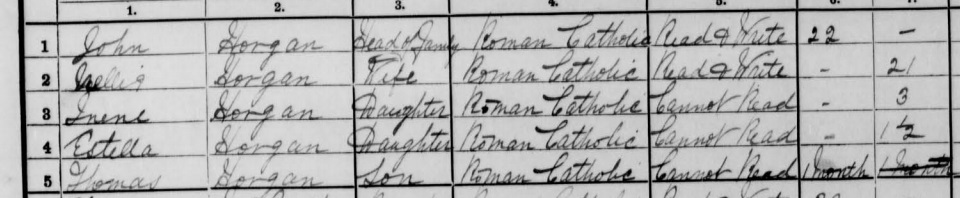 1. 2. 3. 4. 5. 6. 7.
1 John Horgan Head of Family Roman Catholic Read & Write 22 -
2 Nellie Horgan Wife Roman Catholic Read & Write - 21
3 Irene Horgan Daughter Roman Catholic Cannot Read - 3
4 Estella Horgan Daughter Roman Catholic Cannot Read - 1 1/2
5 Thomas Horgan Son Roman Catholic Cannot Read 1 month 1 month